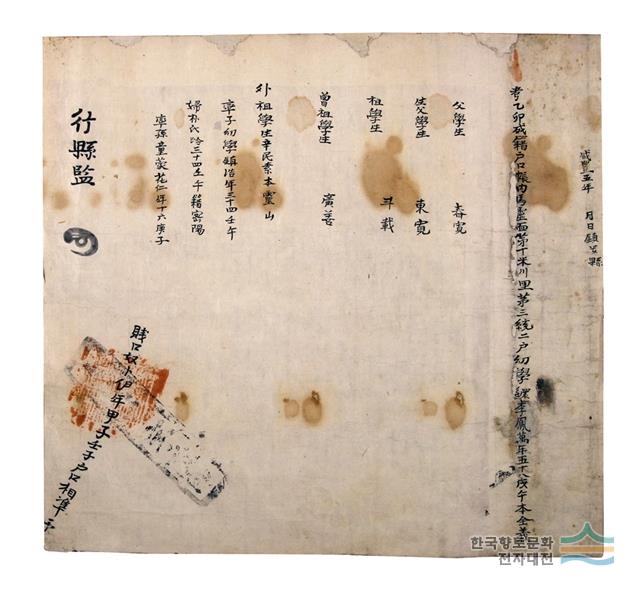 咸豊五年 月 日鎭安縣
考乙卯成籍戶口帳內馬靈面第十米川里第三統二戶幼學鰥李鳳萬年五十八戊午本全義
父學生 春寬
生父學生 東寬
祖學生 斗載
曾祖學生 廣善
外祖學生辛民素本靈山
率子幼學鎭洛年三十四壬午
婦朴氏齡三十四壬午籍密陽
率孫童蒙龍仁年十六庚子
賤口奴小伊年甲子壬子戶口相準
行縣監
한국향토문화
전자대전